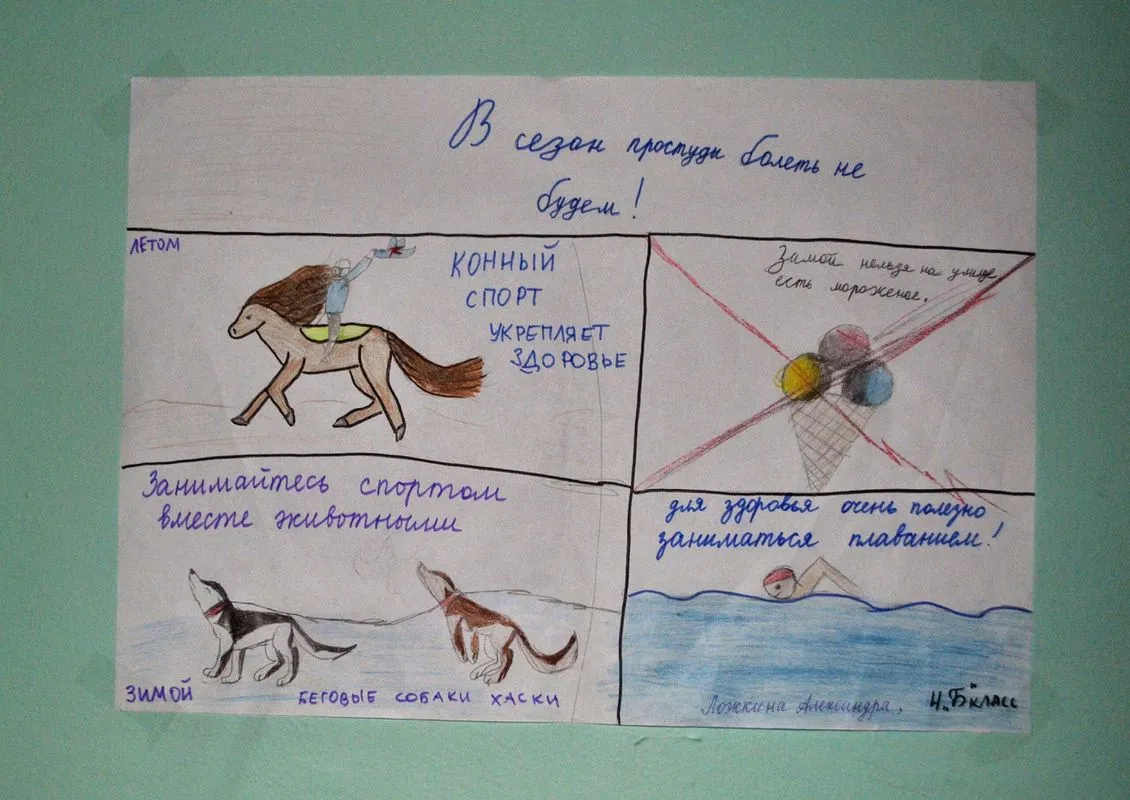 В сезон простуды болеть не
будем!
ЛЕТОМ
КОННЫЙ
СПОРТ
УКРЕПЛЯЕТ
ЗДОРОВЬЕ
Зимой нельзя на улице
есть мороженое.
Занимайтесь спортом
вместе животными
ЗИМОЙ
БЕГОВЫЕ СОБАКИ ХАСКИ
для здоровья очень полезно
заниматься плаванием!
Ложкина Александра.
4"Б" класс